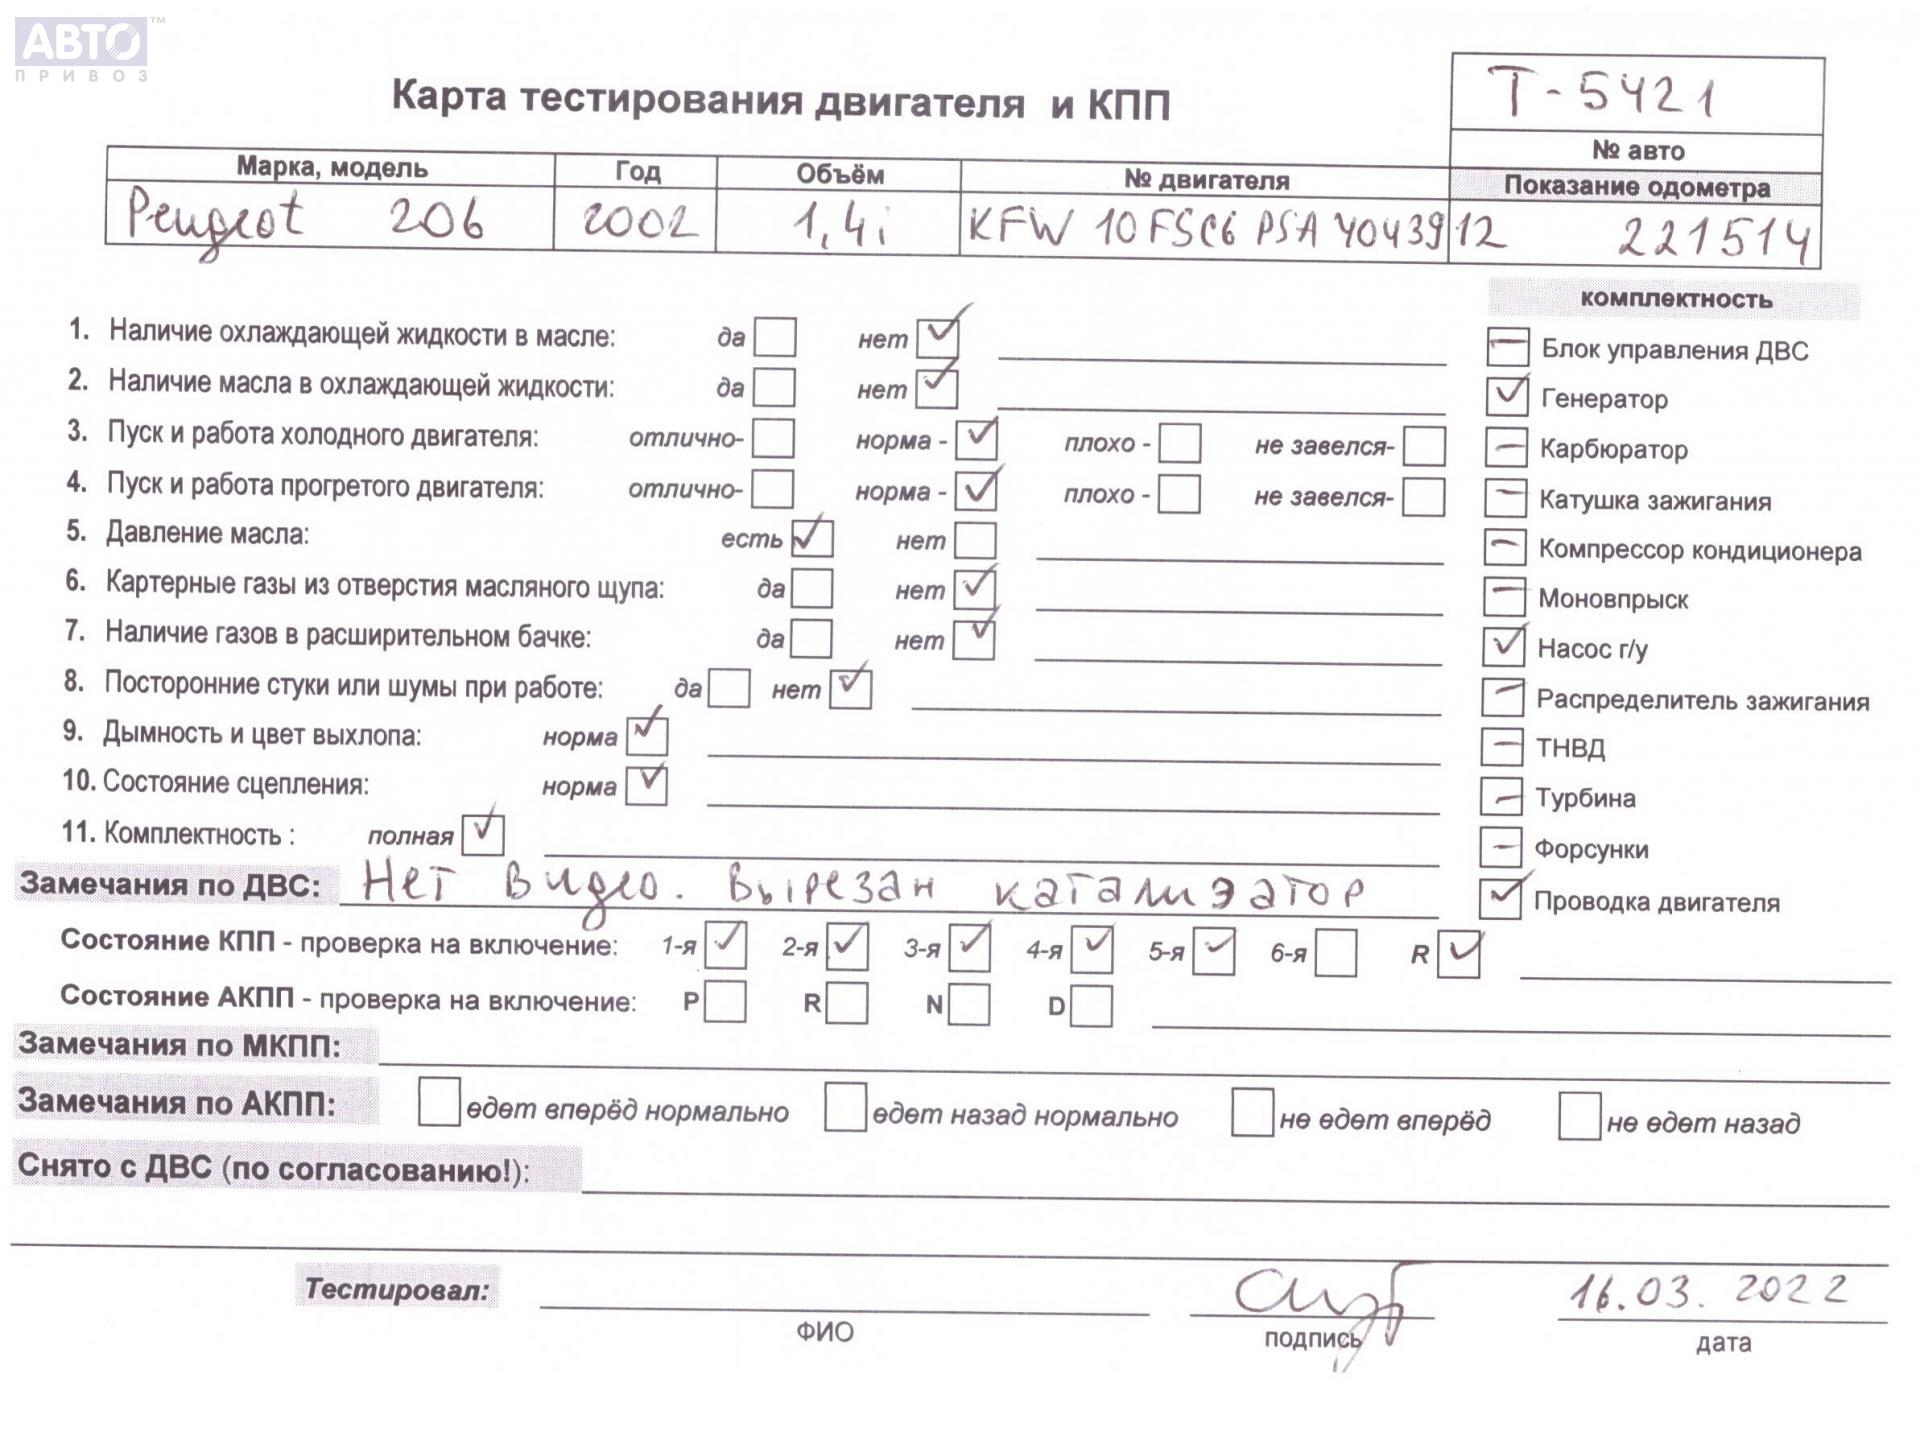 АВТО™
ПРИВОЗ
Карта тестирования двигателя и КПП
Т-5421
№ авто
Марка, модель Год Объём № двигателя Показание одометра
Peugeot 206 2002 1,4i KFW 10FSC6 PSA 4043912 221514
комплектность
1. Наличие охлаждающей жидкости в масле: да нет ✓
Блок управления ДВС
2. Наличие масла в охлаждающей жидкости: да нет ✓
Генератор ✓
3. Пуск и работа холодного двигателя: отлично- норма - ✓ плохо - не завелся-
Карбюратор
4. Пуск и работа прогретого двигателя: отлично- норма - ✓ плохо - не завелся-
Катушка зажигания
5. Давление масла: есть ✓ нет
Компрессор кондиционера
6. Картерные газы из отверстия масляного щупа: да нет ✓
Моновпрыск
7. Наличие газов в расширительном бачке: да нет ✓
Насос г/у ✓
8. Посторонние стуки или шумы при работе: да нет ✓
Распределитель зажигания
9. Дымность и цвет выхлопа: норма ✓
ТНВД
10. Состояние сцепления: норма ✓
Турбина
11. Комплектность : полная ✓
Форсунки
Замечания по ДВС: Нет видео. Вырезан катализатор
Проводка двигателя ✓
Состояние КПП - проверка на включение: 1-я ✓ 2-я ✓ 3-я ✓ 4-я ✓ 5-я ✓ 6-я R ✓
Состояние АКПП - проверка на включение: P R N D
Замечания по МКПП:
Замечания по АКПП: едет вперёд нормально едет назад нормально не едет вперёд не едет назад
Снято с ДВС (по согласованию!):
Тестировал: 16.03.2022
ФИО подпись дата